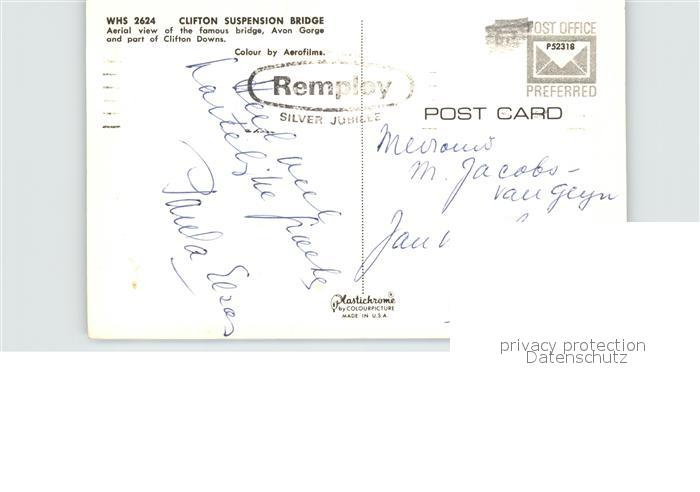 WHS 2624 CLIFTON SUSPENSION BRIDGE
Aerial view of the famous bridge, Avon Gorge
and part of Clifton Downs.
Colour by Aerofilms.
Remploy
SILVER JUBILEE
POST OFFICE
P52318
PREFERRED
POST CARD
Heel veel
hartelijke groets
Paula
M. Jacobs-
van Geyn
Jan
Plastichrome®
by COLOURPICTURE
MADE IN U.S.A.
privacy protection
Datenschutz